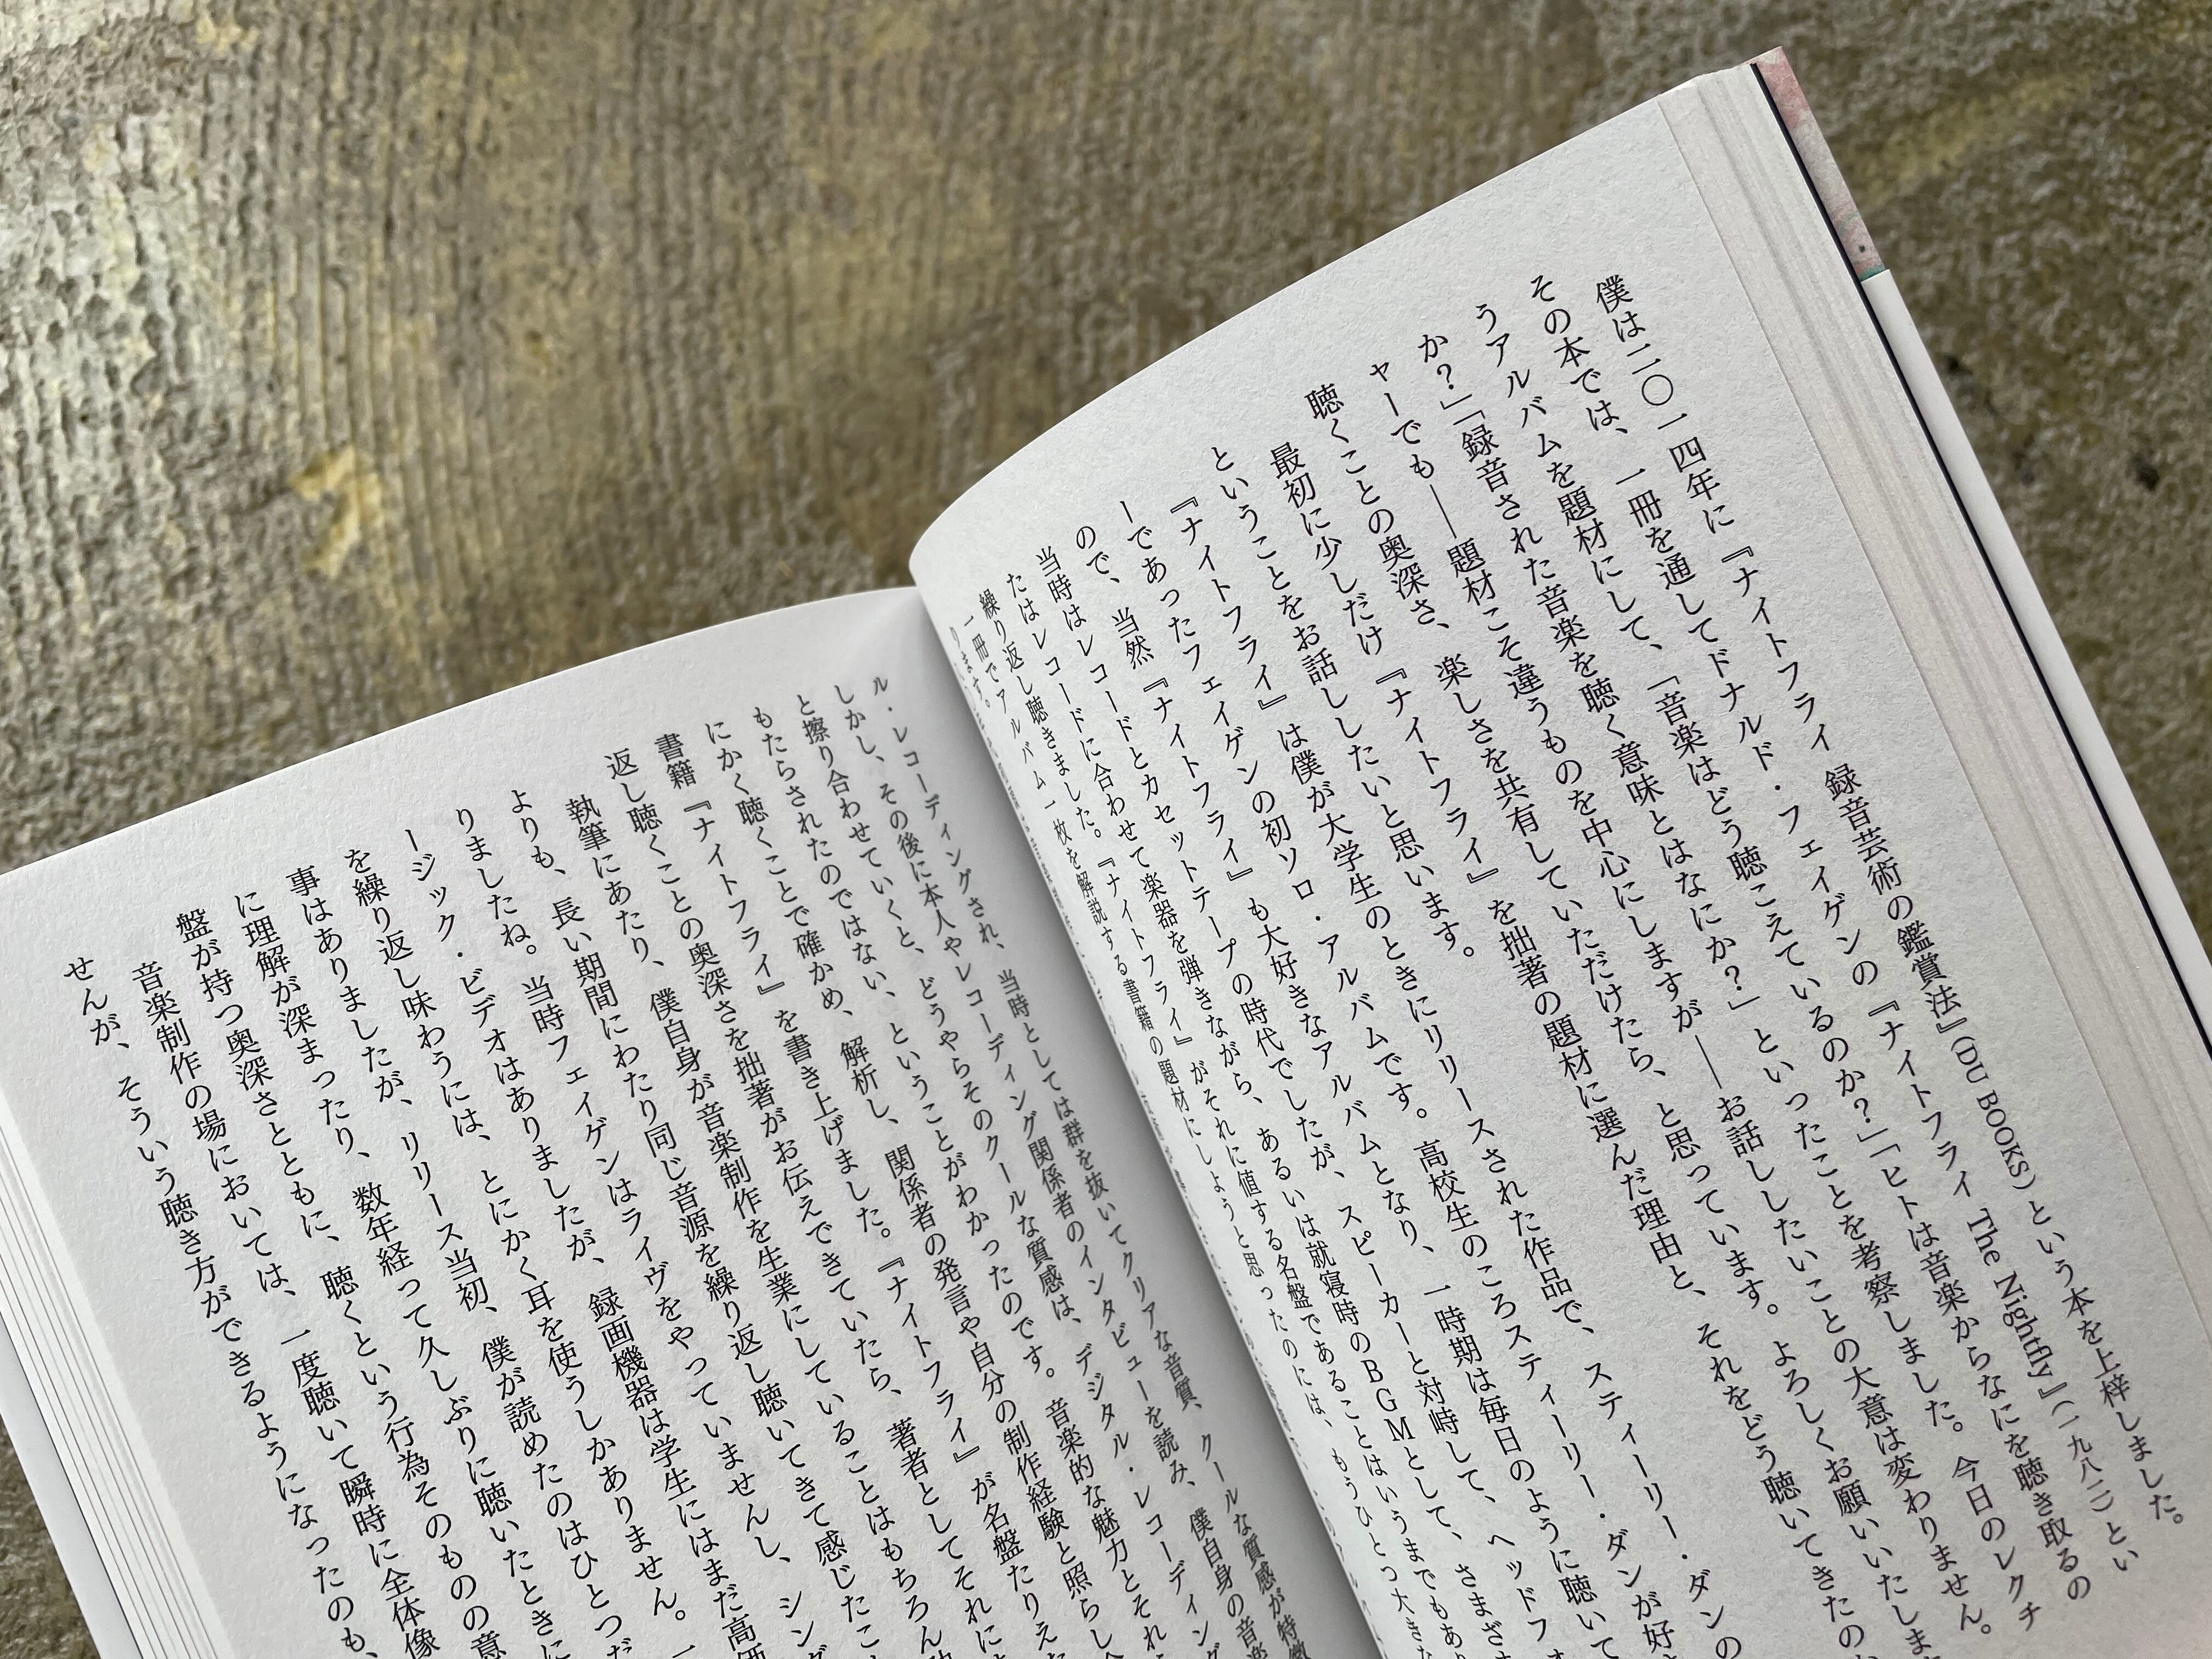 僕は二〇一四年に『ナイトフライ 録音芸術の鑑賞法』(DU BOOKS)という本を上梓しました。
その本では、一冊を通してドナルド・フェイゲンの『ナイトフライ The Nightfly』(一九八二)とい
うアルバムを題材にして、「音楽はどう聴こえているのか?」「ヒトは音楽からなにを聴き取るの
か?」「録音された音楽を聴く意味とはなにか?」といったことを考察しました。今日のレクチ
ャーでも──題材こそ違うものを中心にしますが──お話ししたいことの大意は変わりません。
聴くことの奥深さ、楽しさを共有していただけたら、と思っています。よろしくお願いいたしま
最初に少しだけ『ナイトフライ』を拙著の題材に選んだ理由と、それをどう聴いてきたのか
ということをお話ししたいと思います。
『ナイトフライ』は僕が大学生のときにリリースされた作品で、スティーリー・ダンの
ーであったフェイゲンの初ソロ・アルバムです。高校生のころスティーリー・ダンが好
ので、当然『ナイトフライ』も大好きなアルバムとなり、一時期は毎日のように聴いて
当時はレコードとカセットテープの時代でしたが、スピーカーと対峙して、ヘッドフォ
たはレコードに合わせて楽器を弾きながら、あるいは就寝時のBGMとして、さまざ
繰り返し聴きました。『ナイトフライ』がそれに値する名盤であることはいうまでもあり
一冊でアルバム一枚を解説する書籍の題材にしようと思ったのには、もうひとつ大きな
ります。
ル・レコーディングされ、当時としては群を抜いてクリアな音質、クールな質感が特徴
しかし、その後に本人やレコーディング関係者のインタビューを読み、僕自身の音楽
と擦り合わせていくと、どうやらそのクールな質感は、デジタル・レコーディング
もたらされたのではない、ということがわかったのです。音楽的な魅力とそれ
にかく聴くことで確かめ、解析し、関係者の発言や自分の制作経験と照らし合
書籍『ナイトフライ』を書き上げました。『ナイトフライ』が名盤たりえた
返し聴くことの奥深さを拙著がお伝えできていたら、著者としてそれに
執筆にあたり、僕自身が音楽制作を生業にしていることはもちろん
よりも、長い期間にわたり同じ音源を繰り返し聴いてきて感じたこ
りましたね。当時フェイゲンはライヴをやっていませんし、シング
ージック・ビデオはありましたが、録画機器は学生にはまだ高価
を繰り返し味わうには、とにかく耳を使うしかありません。一
事はありましたが、リリース当初、僕が読めたのはひとつだ
に理解が深まったり、数年経って久しぶりに聴いたときに
盤が持つ奥深さとともに、聴くという行為そのものの意
音楽制作の場においては、一度聴いて瞬時に全体像
せんが、そういう聴き方ができるようになったのも、